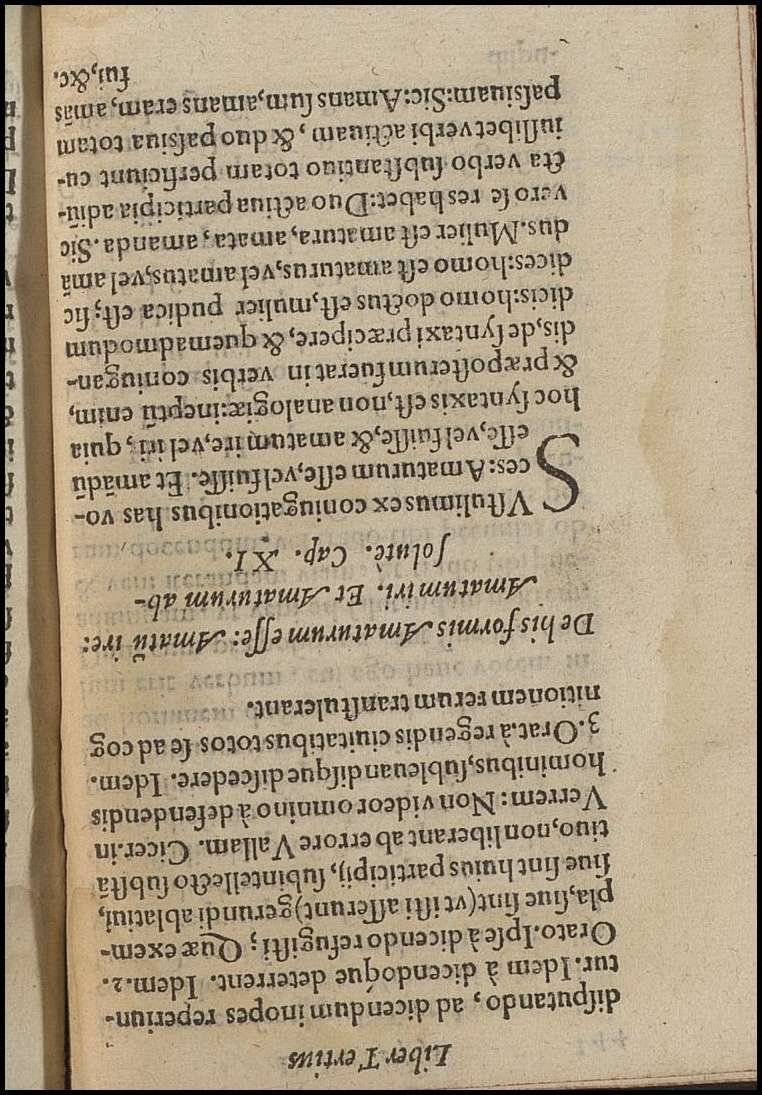 Liber Tertius
disputando, ad dicendum inopes reperiun-
tur. Idem à dicendoque deterrent. Idem. 2.
Orato. Ipse à dicendo refugisti; Quæ exem-
pla, siue sint (vt isti asserunt) gerundi ablatiui,
siue sint huius participij, subintellecto substã
tiuo, non liberant ab errore Vallam. Cicer. in
Verrem: Non videor omnino à defendendis
hominibus, subleuandisque discedere. Idem.
3. Orat. à regendis ciuitatibus totos se ad cog
nitionem rerum transtulerant.
De his formis Amaturum esse: Amatũ ire:
Amatum iri. Et Amaturum ab-
solutè. Cap. XI.
SVstulimus ex coniugationibus has vo-
ces: Amaturum esse, vel fuisse. Et amãdũ
esse, vel fuisse, & amatum ire, vel iri, quia
hoc syntaxis est, non analogiæ: ineptũ enim,
& præposterum fuerat in verbis coniugan-
dis, de syntaxi præcipere, & quemadmodum
dicis: homo doctus est, mulier pudica est; sic
dices: homo est amaturus, vel amatus, vel amã
dus. Mulier est amatura, amata, amanda. Sic
vero se res habet: Duo actiua participia adiũ-
cta verbo substantiuo totam perficiunt cu-
iuslibet verbi actiuam, & duo passiua totam
passiuam: Sic: Amans sum, amans eram, amãs
fui, &c.